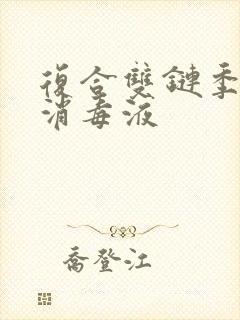 復合雙鏈季
消毒液
喬登江